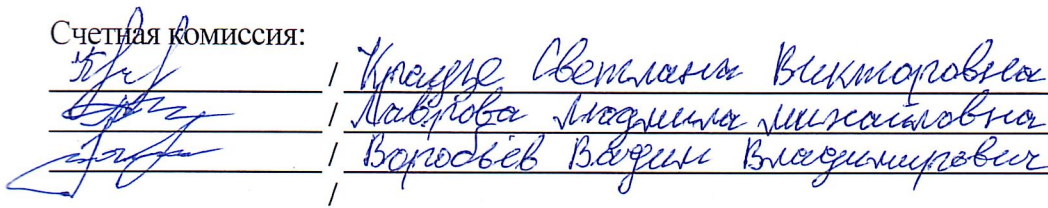 Счетная комиссия:
/ Краузе Светлана Викторовна
/ Лаврова Людмила Михайловна
/ Воробьёв Вадим Владимирович
/